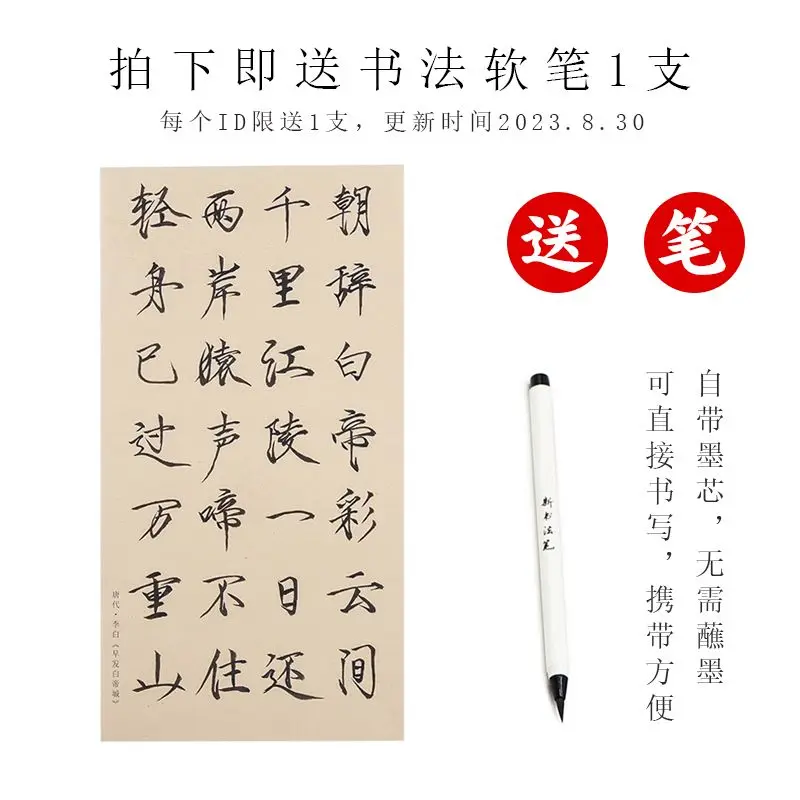 拍下即送书法软笔1支
每个ID限送1支，更新时间2023.8.30
朝辞白帝彩云间
千里江陵一日还
两岸猿声啼不住
轻舟已过万重山
唐代·李白《早发白帝城》
送
笔
自带墨芯，无需蘸墨
可直接书写，携带方便
新书法笔